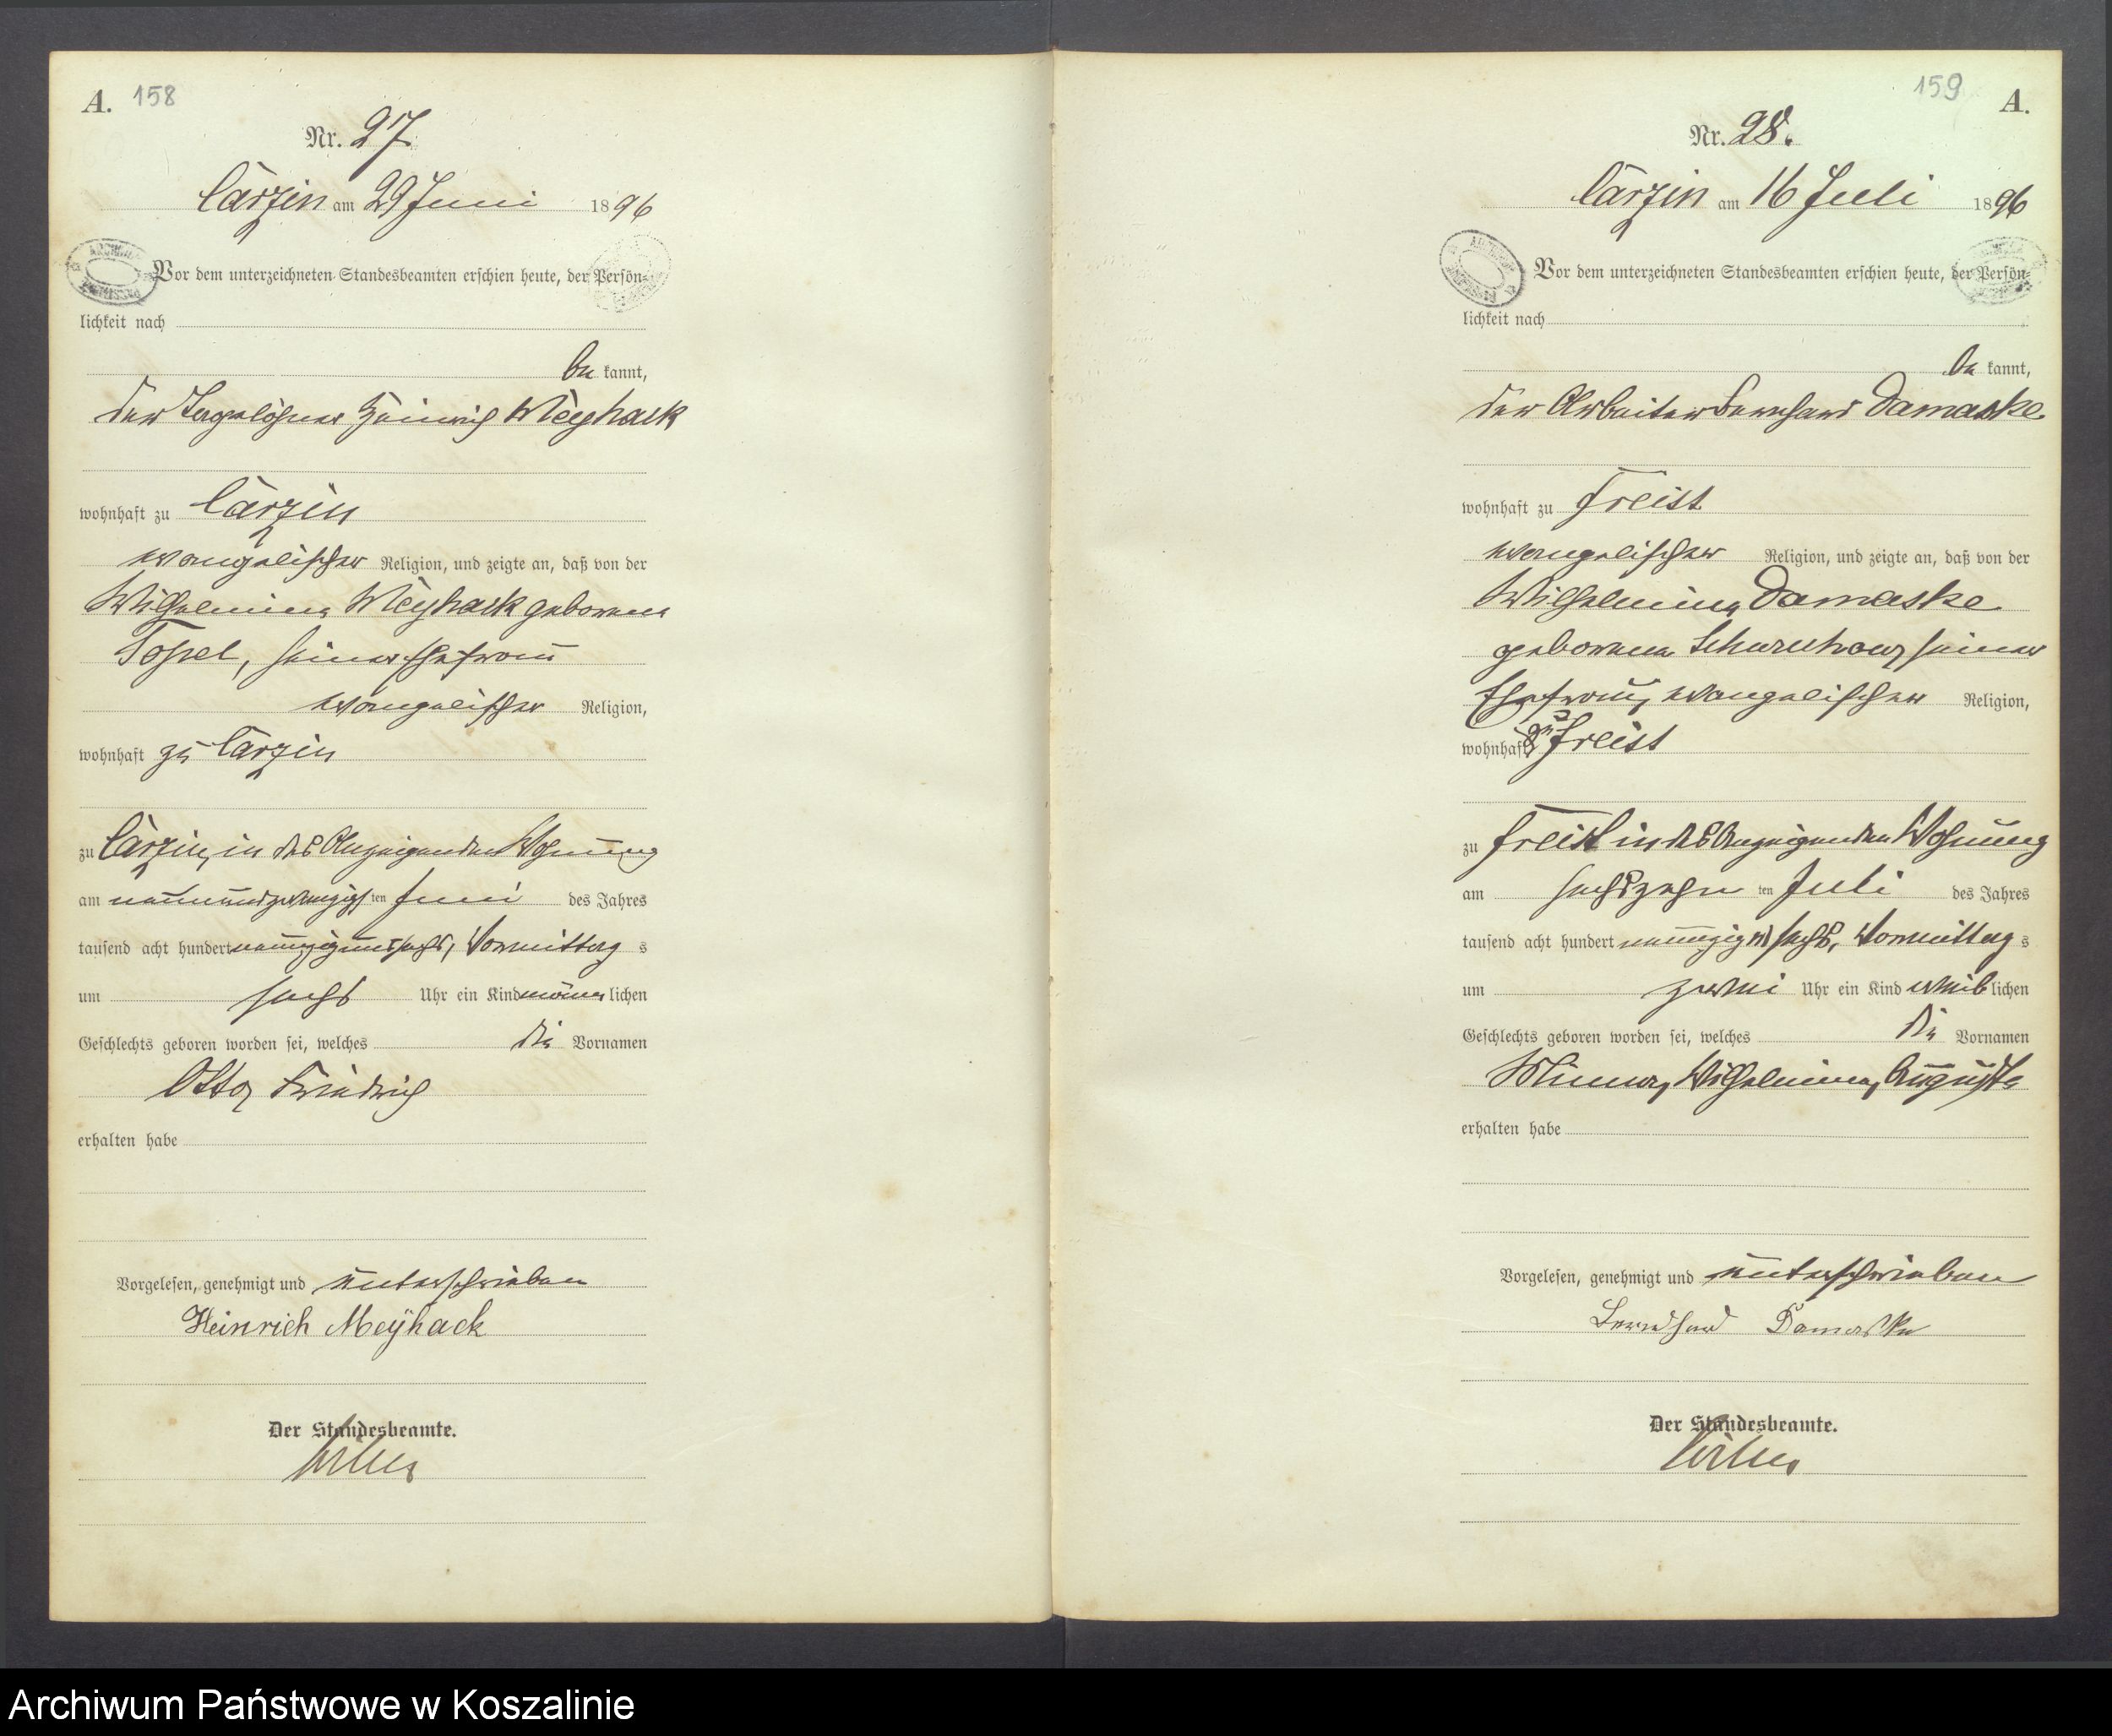 A. 158
Nr. 27
Carzin am 29 Juni 1896
Vor dem unterzeichneten Standesbeamten erschien heute, der Persön-
lichkeit nach
be kannt,
der Tagelöhner Heinrich Meyhack
wohnhaft zu Carzin
evangelischer Religion, und zeigte an, daß von der
Wilhelmine Meyhack geborene
Topel, seiner Ehefrau
evangelischer Religion,
wohnhaft zu Carzin
zu Carzin, in des Anzeigenden Wohnung
am neunundzwanzigsten Juni des Jahres
tausend acht hundert neunzig und sechs, Vormittag s
um sechs Uhr ein Kind männ lichen
Geschlechts geboren worden sei, welches die Vornamen
Otto, Friedrich
erhalten habe
Vorgelesen, genehmigt und unterschrieben
Heinrich Meÿhack
Der Standesbeamte.
159 A.
Nr. 28.
Carzin am 16 Juli 1896
Vor dem unterzeichneten Standesbeamten erschien heute, der Persön-
lichkeit nach
be kannt,
der Arbeiter Bernhard Damaske
wohnhaft zu Freist
evangelischer Religion, und zeigte an, daß von der
Wilhelmine Damaske
geborene seiner
Ehefrau, evangelischer Religion,
wohnhaft zu Freist
zu Freist in des Anzeigenden Wohnung
am sechszehn ten Juli des Jahres
tausend acht hundert neunzig und sechs, Vormittag s
um zwei Uhr ein Kind weib lichen
Geschlechts geboren worden sei, welches die Vornamen
Minna, Wilhelmine, Auguste
erhalten habe
Vorgelesen, genehmigt und unterschrieben
Bernhard Damaske
Der Standesbeamte.
Archiwum Państwowe w Koszalinie